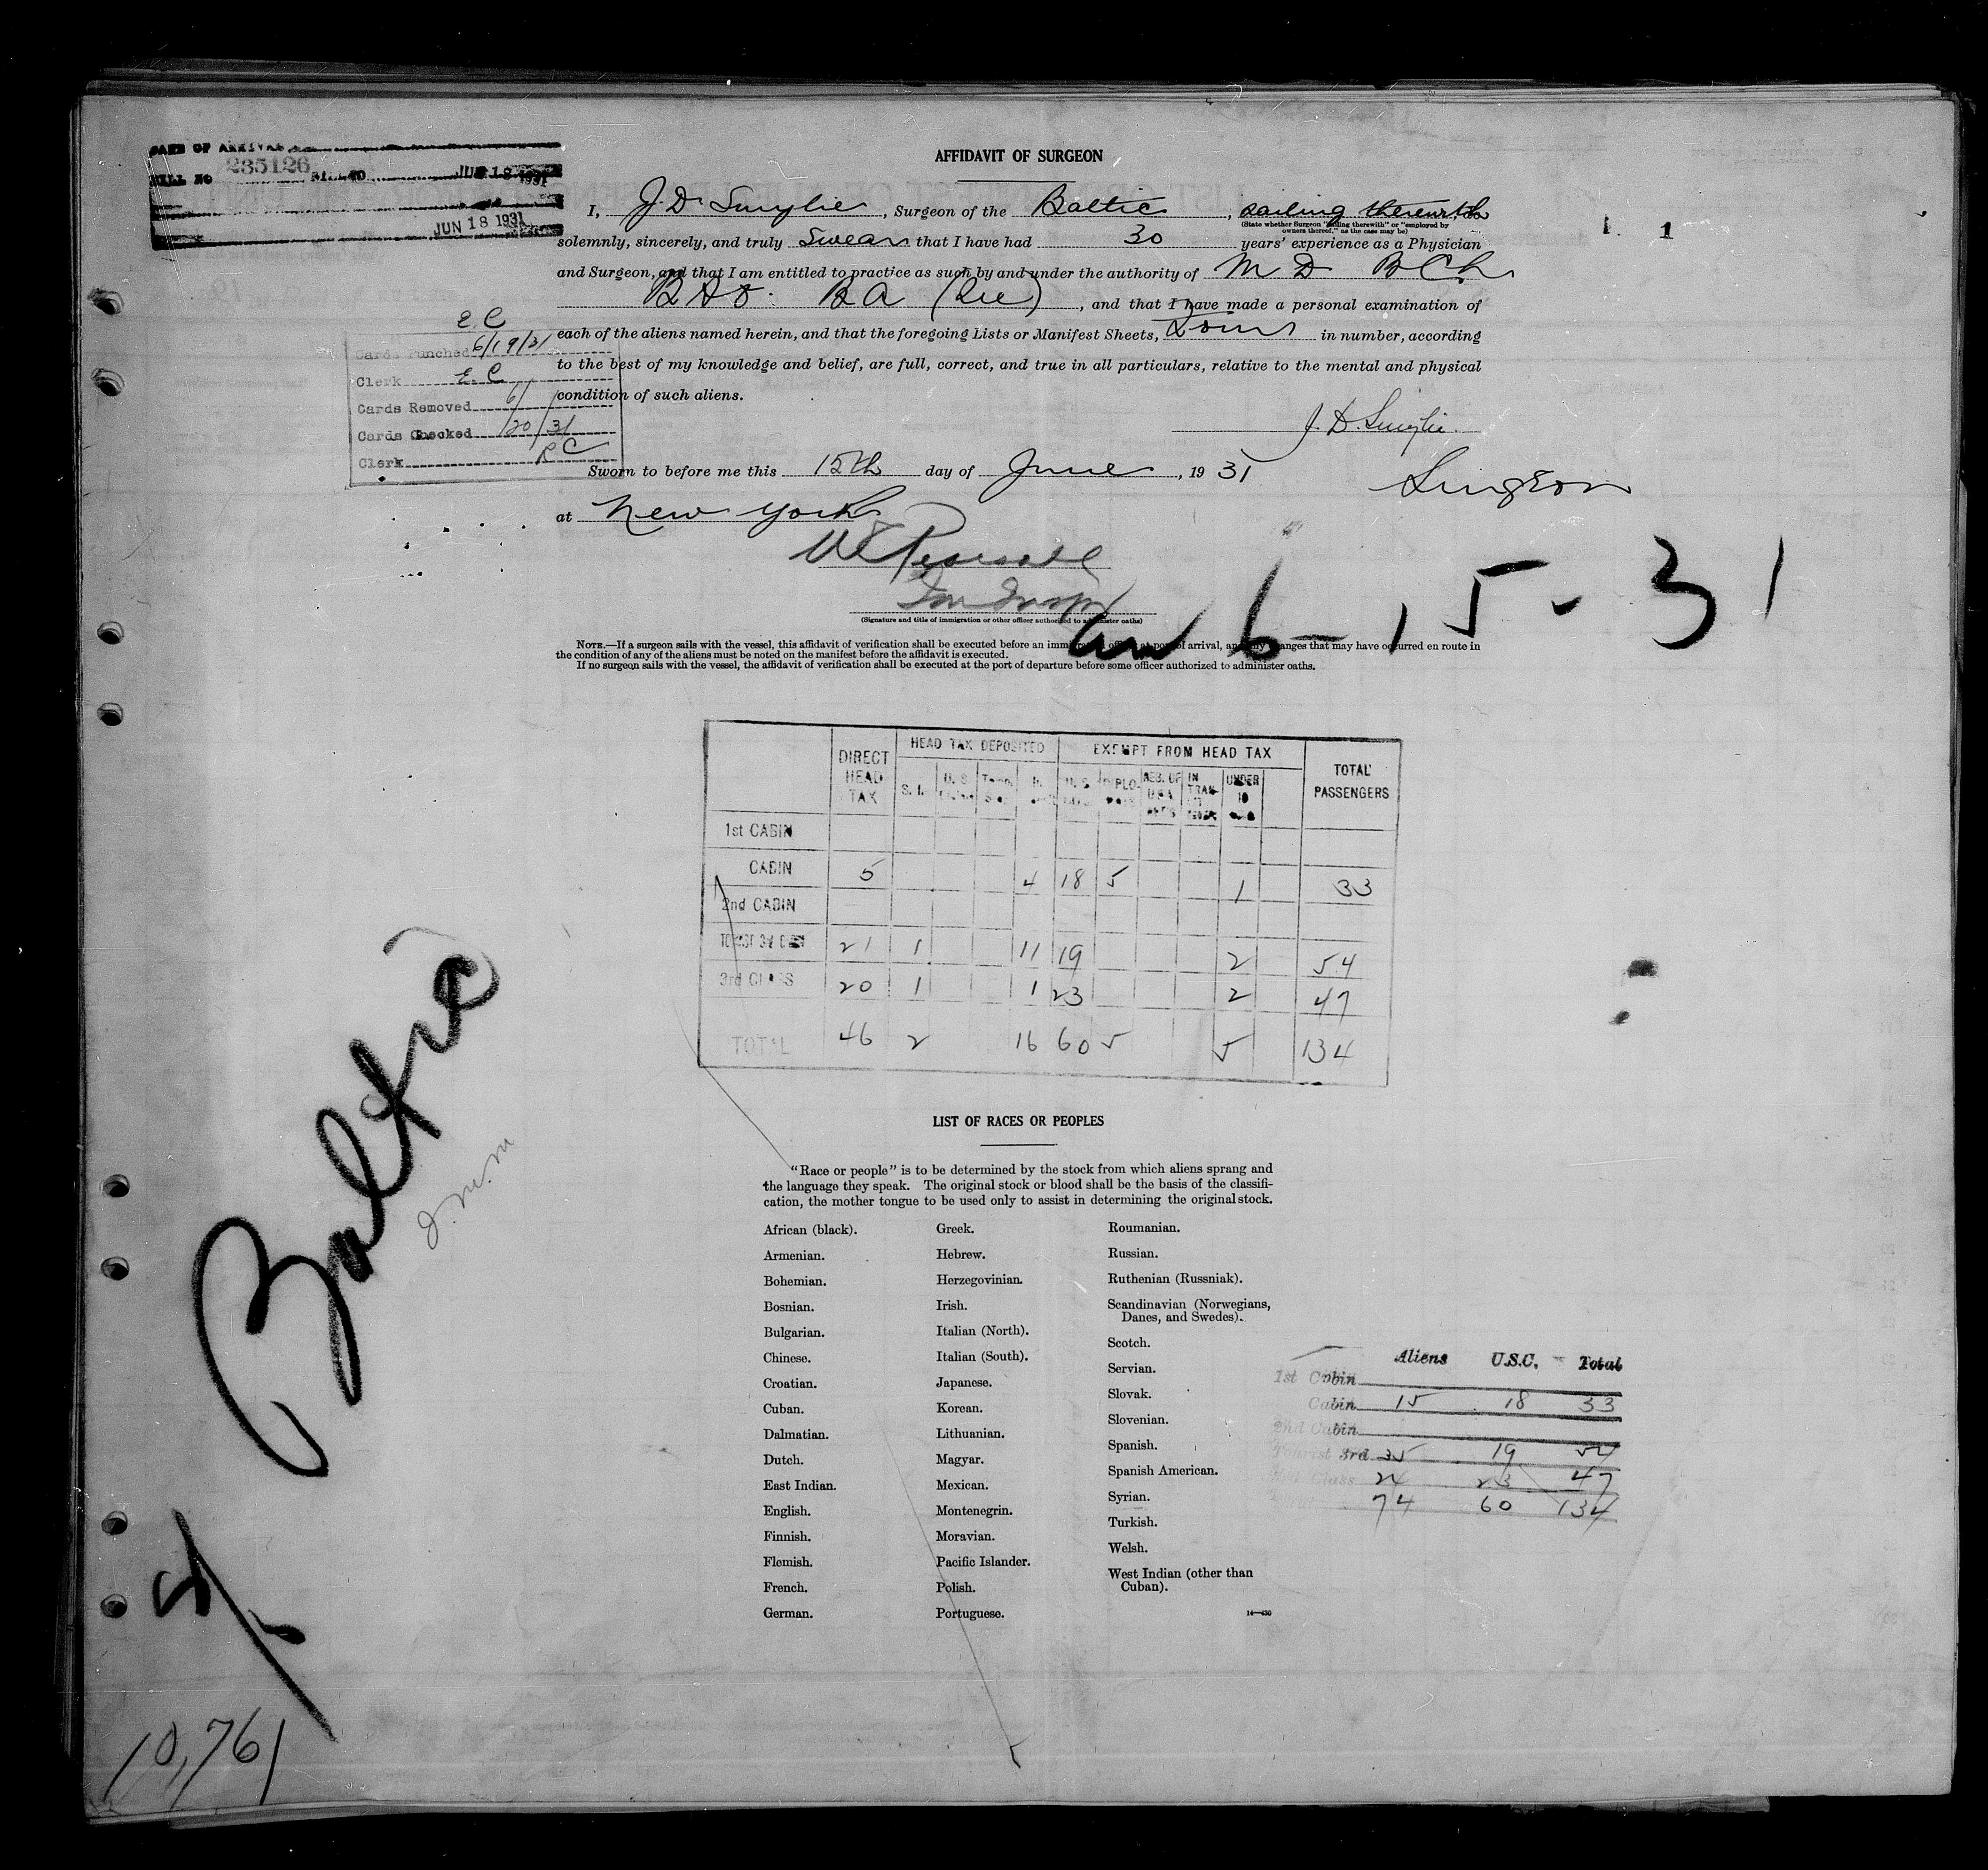 DATE OF ARRIVAL
BILL NO 235126 JUN 18 1931
JUN 18 1931
AFFIDAVIT OF SURGEON
I, J. D. Smylie, Surgeon of the Baltic, sailing therewith
(State whether Surgeon "sailing therewith" or "employed by
owners thereof," as the case may be)
solemnly, sincerely, and truly Swear that I have had 30 years' experience as a Physician
and Surgeon, and that I am entitled to practice as such by and under the authority of M D B Ch
B A O. B A, and that I have made a personal examination of
each of the aliens named herein, and that the foregoing Lists or Manifest Sheets, in number, according
to the best of my knowledge and belief, are full, correct, and true in all particulars, relative to the mental and physical
condition of such aliens.
J. D. Smylie.
Surgeon
E C
Cards Punched 6/19/31
Clerk E. C.
Cards Removed 6/
Cards Checked /20/31
Clerk R C
Sworn to before me this 15th day of June, 19 31
at New York
(Signature and title of immigration or other officer authorized to administer oaths)
1 1
6-15-31
NOTE.—If a surgeon sails with the vessel, this affidavit of verification shall be executed before an immigration officer at port of arrival, and any changes that may have occurred en route in
the condition of any of the aliens must be noted on the manifest before the affidavit is executed.
If no surgeon sails with the vessel, the affidavit of verification shall be executed at the port of departure before some officer authorized to administer oaths.
DIRECT HEAD TAX HEAD TAX DEPOSITED EXEMPT FROM HEAD TAX TOTAL PASSENGERS
S. I. U. S. IN TRAN UNDER 10
1st CABIN
CABIN 5 4 18 5 1 33
2nd CABIN
TOURIST 3rd 21 1 11 19 2 54
3rd CLASS 20 1 1 23 2 47
TOTAL 46 2 16 60 5 5 134
Baltic
J. M. M
5/1
10,761
LIST OF RACES OR PEOPLES
"Race or people" is to be determined by the stock from which aliens sprang and
the language they speak. The original stock or blood shall be the basis of the classifi-
cation, the mother tongue to be used only to assist in determining the original stock.
African (black).
Armenian.
Bohemian.
Bosnian.
Bulgarian.
Chinese.
Croatian.
Cuban.
Dalmatian.
Dutch.
East Indian.
English.
Finnish.
Flemish.
French.
German.
Greek.
Hebrew.
Herzegovinian.
Irish.
Italian (North).
Italian (South).
Japanese.
Korean.
Lithuanian.
Magyar.
Mexican.
Montenegrin.
Moravian.
Pacific Islander.
Polish.
Portuguese.
Roumanian.
Russian.
Ruthenian (Russniak).
Scandinavian (Norwegians,
Danes, and Swedes).
Scotch.
Servian.
Slovak.
Slovenian.
Spanish.
Spanish American.
Syrian.
Turkish.
Welsh.
West Indian (other than
Cuban).
14—430
Aliens U.S.C. Total
1st Cabin
Cabin 15 18 33
2nd Cabin
Tourist 3rd 35 19 54
Class 24 23 47
74 60 134